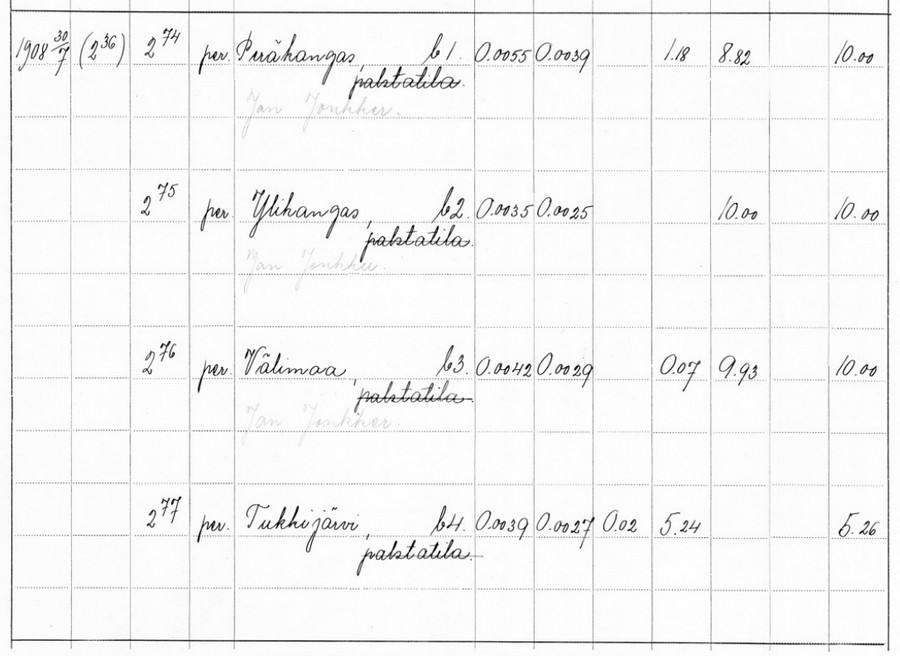 1908 30/7 (2 36) 2 74 per. Perähangas, b1. 0.0055 0.0039 1.18 8.82 10.00
palstatila.
Jan Jonkker.
2 75 per. Ylihangas, b2. 0.0035 0.0025 10.00 10.00
palstatila.
Jan
2 76 per. Välimaa, b3. 0.0042 0.0029 0.07 9.93 10.00
palstatila.
Jan Jonkker.
2 77 per. Tukhijärvi, b4. 0.0039 0.0027 0.02 5.24 5.26
palstatila.